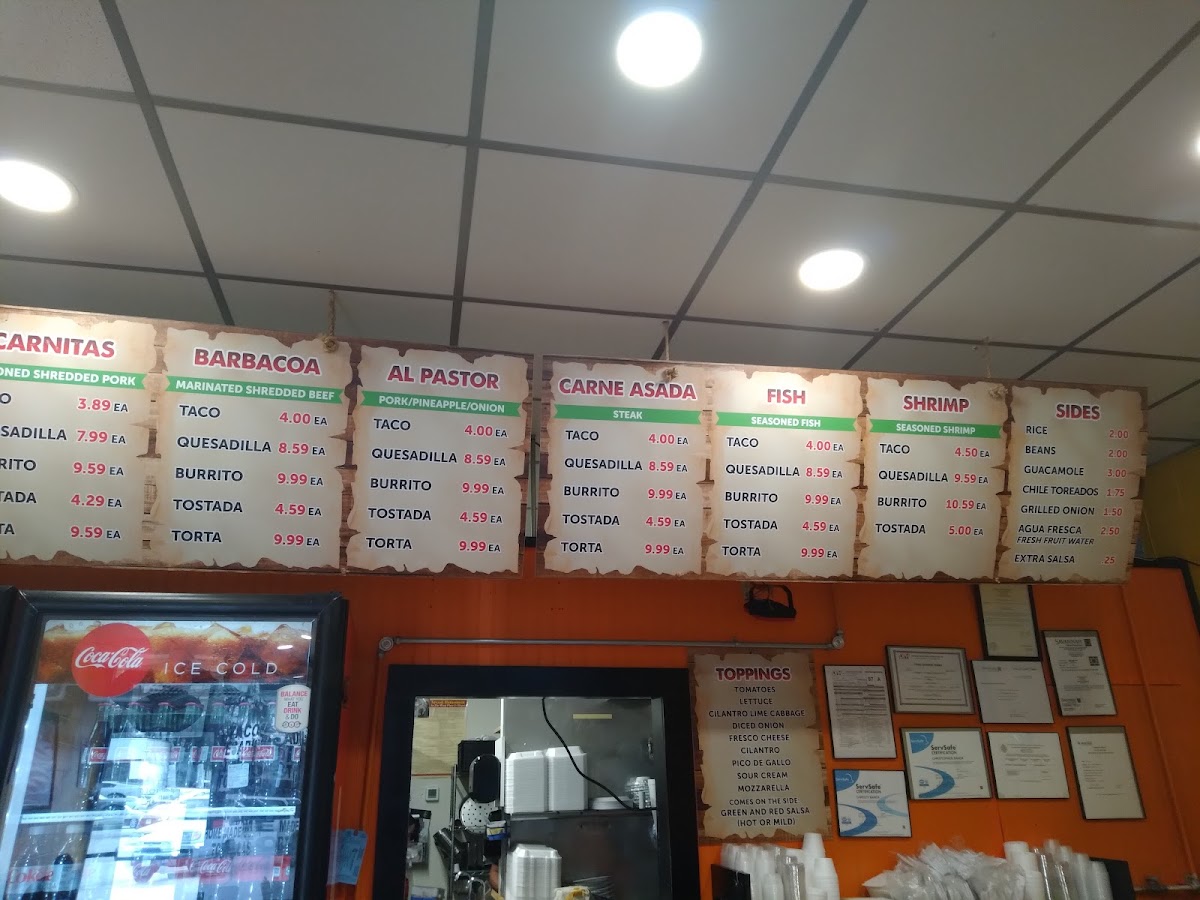 CARNITAS
SHREDDED PORK
3.89 EA
7.99 EA
9.59 EA
4.29 EA
9.59 EA
BARBACOA
MARINATED SHREDDED BEEF
TACO 4.00 EA
QUESADILLA 8.59 EA
BURRITO 9.99 EA
TOSTADA 4.59 EA
TORTA 9.99 EA
AL PASTOR
PORK/PINEAPPLE/ONION
TACO 4.00 EA
QUESADILLA 8.59 EA
BURRITO 9.99 EA
TOSTADA 4.59 EA
TORTA 9.99 EA
CARNE ASADA
STEAK
TACO 4.00 EA
QUESADILLA 8.59 EA
BURRITO 9.99 EA
TOSTADA 4.59 EA
TORTA 9.99 EA
FISH
SEASONED FISH
TACO 4.00 EA
QUESADILLA 8.59 EA
BURRITO 9.99 EA
TOSTADA 4.59 EA
TORTA 9.99 EA
SHRIMP
SEASONED SHRIMP
TACO 4.50 EA
QUESADILLA 9.59 EA
BURRITO 10.59 EA
TOSTADA 5.00 EA
SIDES
RICE 2.00
BEANS 2.00
GUACAMOLE 3.00
CHILE TOREADOS 1.75
GRILLED ONION 1.50
AGUA FRESCA 2.50
FRESH FRUIT WATER
EXTRA SALSA 25
Coca-Cola ICE COLD
BALANCE
WHAT YOU
EAT
DRINK
& DO
TOPPINGS
TOMATOES
LETTUCE
CILANTRO LIME CABBAGE
DICED ONION
FRESCO CHEESE
CILANTRO
PICO DE GALLO
SOUR CREAM
MOZZARELLA
COMES ON THE SIDE
GREEN AND RED SALSA
(HOT OR MILD)
ServSafe
CERTIFICATION
ServSafe
CERTIFICATION
Coca-Cola